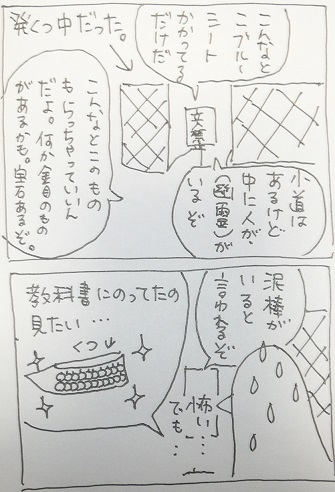 こんなと
こブルー
シート
かかってる
だけだ
発くつ中だった。
小道は
あるけど
中に人が、
が
いるぞ
こんなとこのもの
もらっちゃっていいん
だよ。何か金目のもの
があるかも。宝石あるぞ。
泥棒が
いると
言われるぞ
怖い…
でも…
教科書にのってたの
見たい…
くつ